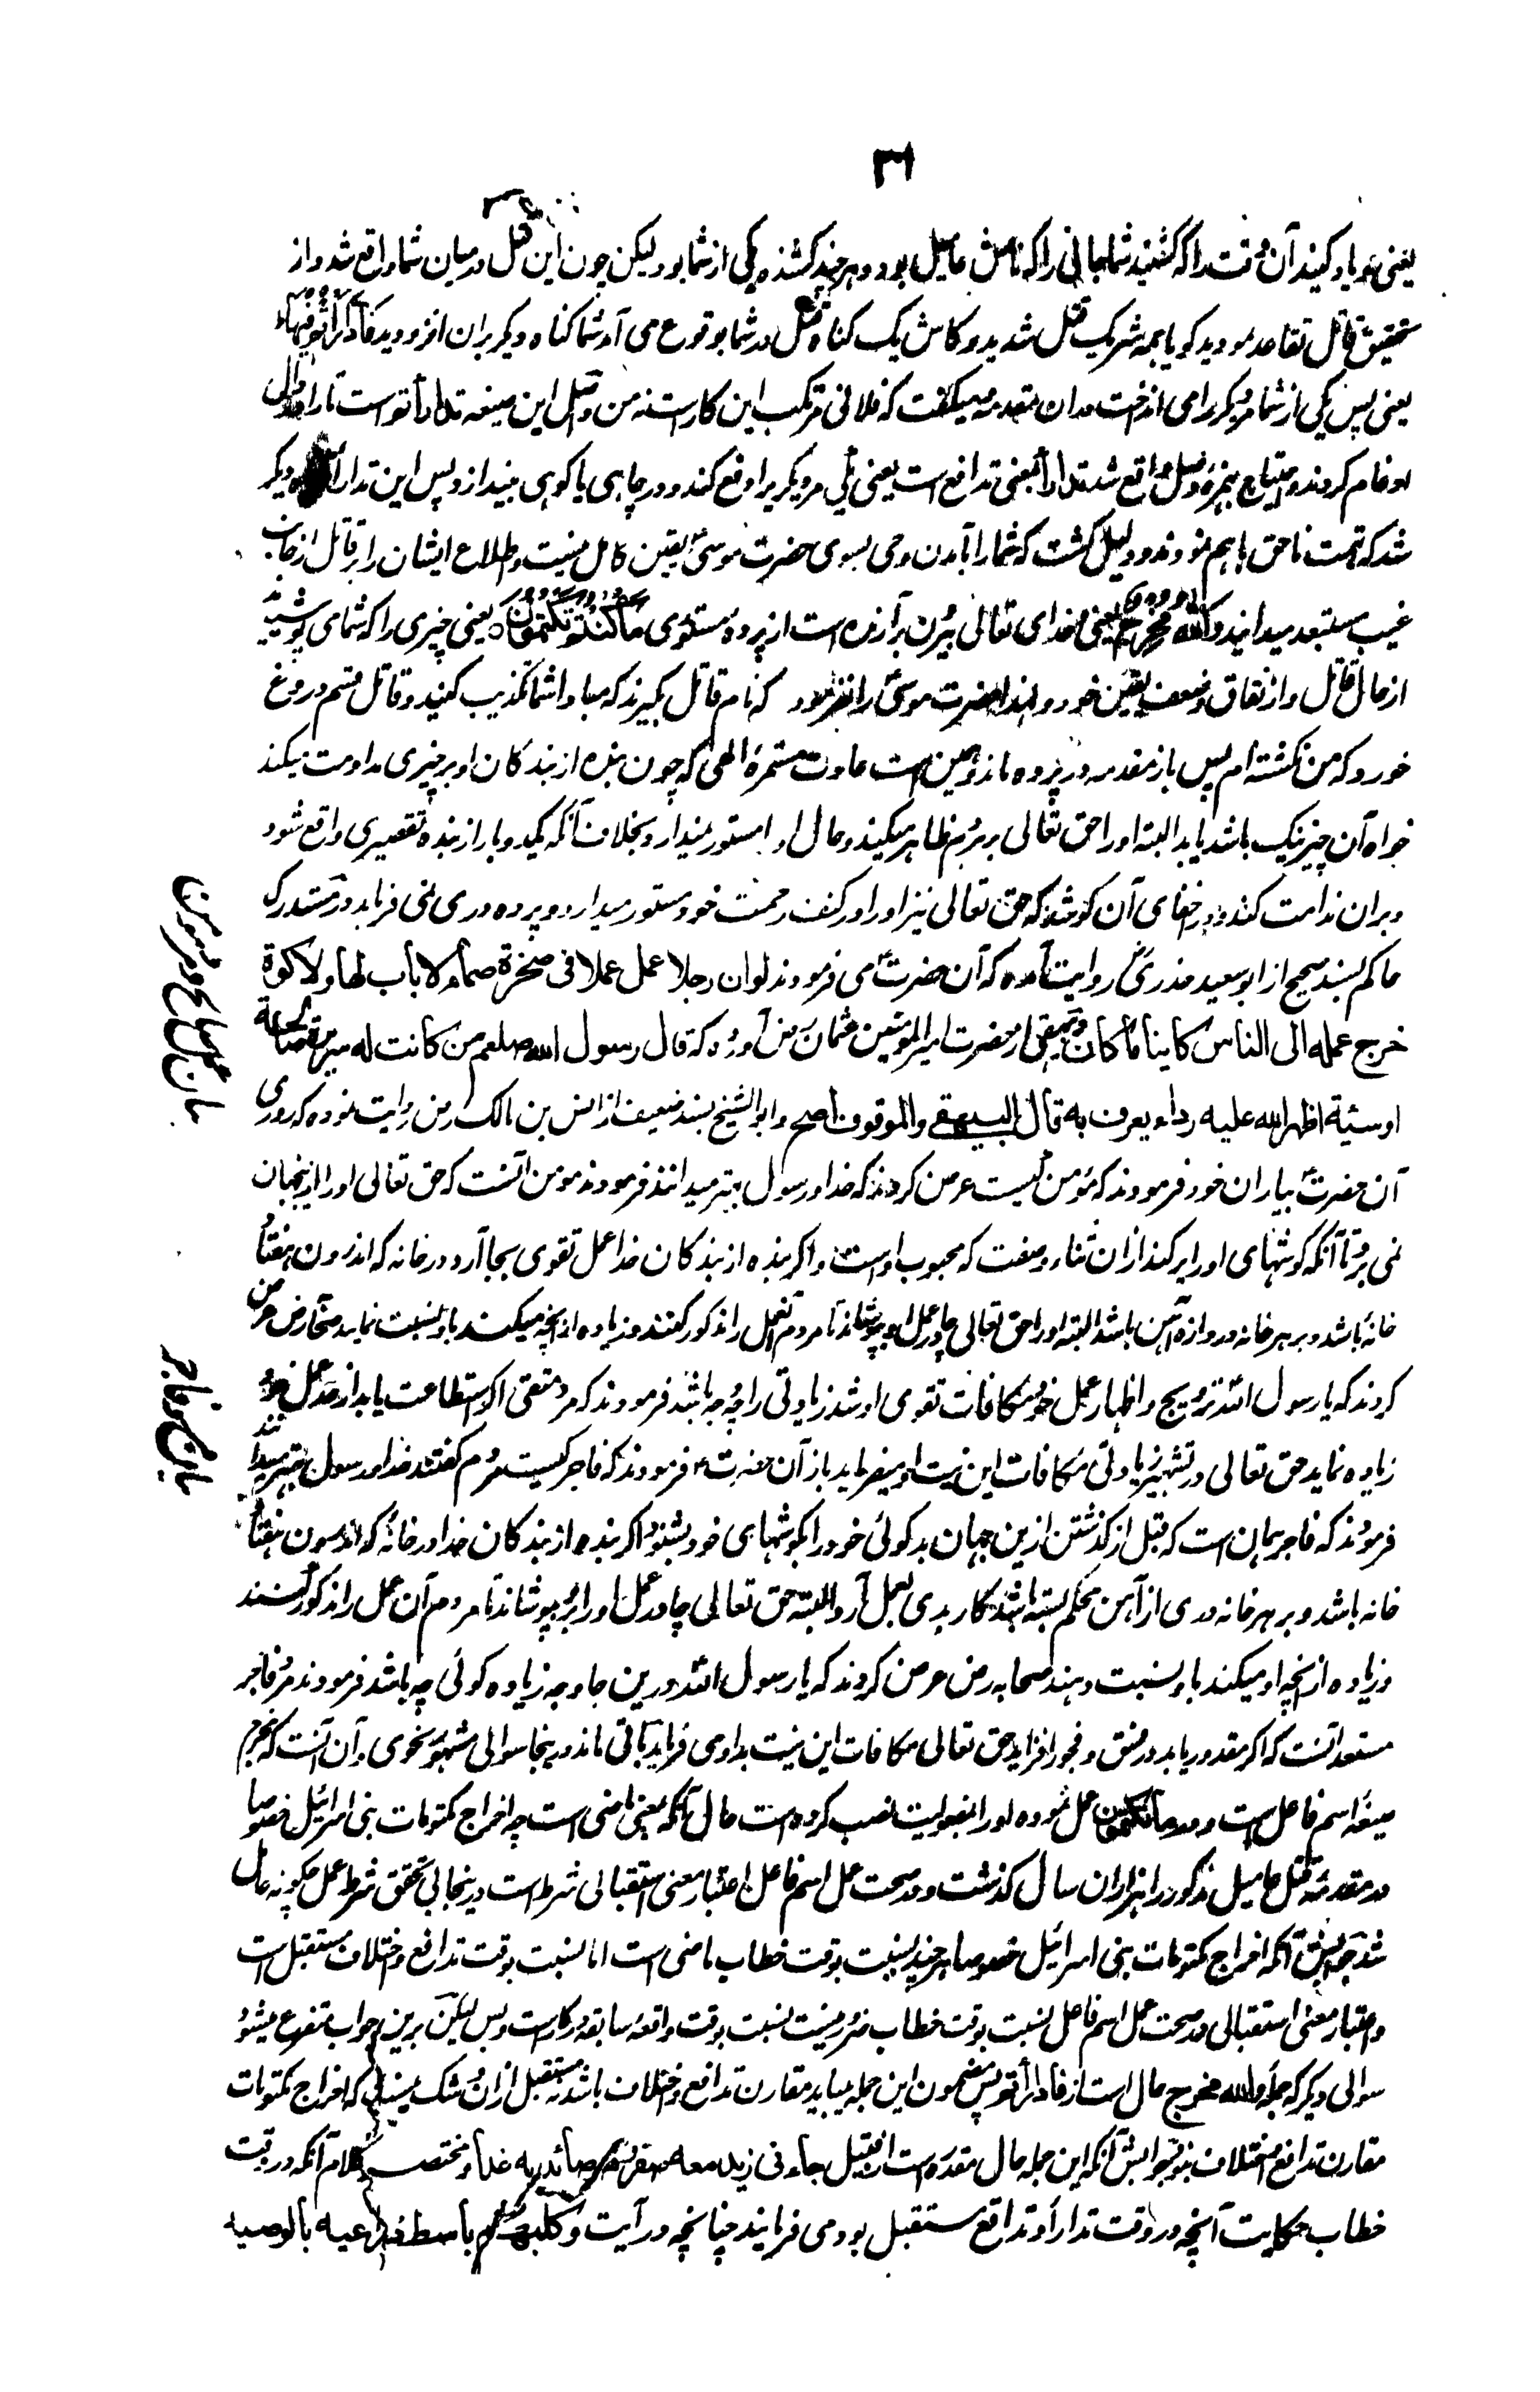 ۳۱
یعنی و یاد کنید آن وقت را که کشتید شما جانی را که نامش عامیل بود و هر چند کشنده یکی از شما بود لیکن چون این قتل در میان شما واقع شد و از
تحقیق قاتل تقاعد نمودید گویا همه شریک قتل شدید و کاش یک گناه قتل در شما بوقوع می آمد شما گناه دیگر بران افزودید فَادّٰرَءْتُمْ فِیْهَا
یعنی پس یکی از شما دیگر را می انداخت دران مقدمه میگفت که فلانی مرتکب این کار است نه من و اصل این صیغه تدارأتم است تا را در دال
ادغام کردند و احتیاج بهمزه وصل واقع شد تدارأ بمعنی تدافع است یعنی یکی مر دیگر را دفع کند و در چاهی یا کوهی بیندازد پس این تدارأ گناه دیگر
شد که تهمت ناحق باهم نمودند و دلیل گشت که شما را بآمدن وحی بسوی حضرت موسیٰ یقین کامل نیست و اطلاع ایشان را بر قاتل از جانب
غیب مستبعد میدانید وَاللّٰهُ مُخْرِجٌ یعنی خدای تعالی بیرون برآرنده است از پرده مستوری مَّا كُنْتُمْ تَكْتُمُوْنَ یعنی چیزی را که شما می پوشیدید
از حال قاتل و از نفاق و ضعف یقین خود و لهذا حضرت موسیٰ را نفرمود که نام قاتل بگیرند که مبادا شما تکذیب کنید و قاتل قسم دروغ
خورد که من نکشته ام پس باز مقدمه در پرده ماند و همین است عادت مستمرهٔ الهی که چون بنده از بندگان او بر چیزی مداومت میکند
خواه آن چیز نیک باشد یا بد البته او را حق تعالی بر مردم ظاهر میکند و حال او را مستور نمیدارد بخلاف آنکه یکدو بار از بنده تقصیری واقع شود
و بران ندامت کند و در اخفای آن کوشد که حق تعالی نیز او را در کنف رحمت خود مستور میدارد و پرده دری نمی فرماید در مستدرک
حاکم بسند صحیح از ابو سعید خدری روایت آمده که آن حضرت می فرمودند لوان رجلا عمل عملا فی صخرة صماء لا باب لها ولا کوة
خرج عمله الی الناس کاینا ما کان و بیهقی از حضرت امیر المؤمنین عثمان رض آورده که قال رسول الله صلعم من کانت له سریرة صالحة
او سیئة اظهر الله علیه رداء یعرف به قال البیهقی والموقوف اصح و ابو الشیخ بسند ضعیف از انس بن مالک رض روایت نموده که روزی
آن حضرت بیاران خود فرمودند که مؤمن کیست عرض کردند که خدا و رسول بهتر میدانند فرمودند مومن آنست که حق تعالی او را ازینجهان
نمی برد تا آنکه گوشهای او را پر کند از ان ثناء و صفت که محبوب اوست و اگر بنده از بندگان خدا عمل تقوی بجا آرد در خانه که اندرون هفتاد
خانه باشد و بر هر خانه دروازه آهن باشد البته او را حق تعالی چادر عمل او بپوشاند تا مردم آن عمل را مذکور کنند و زیاده از آنچه میکند باو نسبت نمایند صحابه رض عرض
کردند که یا رسول الله ترویج و اظهار عمل خود مکافات تقوی او شد زیادتی را چه وجه باشد فرمودند که مرد متقی اگر استطاعت یابد از حد عمل خود
زیاده نماید حق تعالی در تشهیر زیادتی مکافات این نیت او میفرماید باز آن حضرت فرمودند که فاجر کیست مردم گفتند خدا و رسول بهتر میدانند
فرمودند که فاجر همان است که قبل از گذشتن ازین جهان بدگوئی خود را بگوشهای خود بشنود و اگر بنده از بندگان خدا در خانه که اندرون هفتاد
خانه باشد و بر هر خانه دری از آهن محکم بسته باشد کار بدی بعمل آرد البته حق تعالی چادر عمل او را برو بپوشاند تا مردم آن عمل را مذکور کنند
و زیاده از آنچه او میکند باو نسبت دهند صحابه رض عرض کردند که یا رسول الله درین جا وجه زیاده گوئی چه باشد فرمودند مرد فاجر
مستعد آنست که اگر مقدور یابد در فسق و فجور افزاید حق تعالی مکافات این نیت بد او می فرماید باقی ماند درینجا سوالی مشهور نحوی و آن آنست که مخرج
صیغه اسم فاعل است و در ما تکتمون عمل نموده او را بمفعولیت نصب کرده است حال آنکه بمعنی ماضی است چه اخراج مکتومات بنی اسرائیل خصوصا
در مقدمه قتل عامیل مذکور را هزاران سال گذشت و در صحت عمل اسم فاعل اعتبار معنی استقبالی شرط است درینجا بی تحقق شرط عمل چگونه عامل
شد جوابش آنکه اخراج مکتومات بنی اسرائیل خصوصا هر چند بنسبت بوقت خطاب ماضی است اما بنسبت بوقت تدافع و اختلاف مستقبل است
و اعتبار معنی استقبالی در صحت عمل اسم فاعل بنسبت بوقت خطاب ضرور نیست نسبت بوقت واقعه سابقه درکار است و بس لیکن برین جواب متفرع میشود
سوالی دیگر که جمله والله مخرج حال است از فادارأتم پس مضمون این جمله میباید مقارن تدافع و اختلاف باشد نه مستقبل ازان و شک نیست که اخراج مکتومات
مقارن تدافع و اختلاف نبود جوابش آنکه این جمله حال مقدره است از قبیل جاءنی زید معه صقر صائدا به غدا و مختصر کلام آنکه در وقت
خطاب حکایت آنچه در وقت تدارأ و تدافع مستقبل بود می فرمایند چنانچه در آیت و کلبهم باسط ذراعیه بالوصید
بیان شرح عمل مومن
بیان فاجر